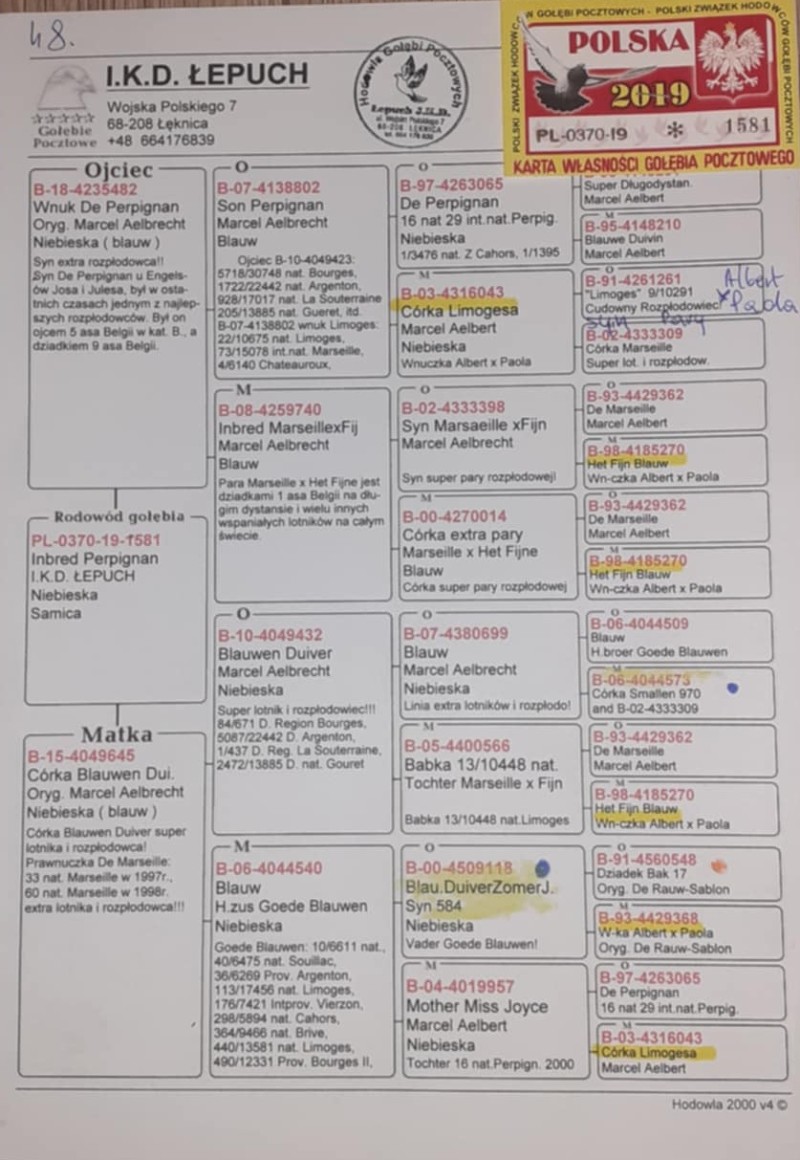 48.
I.K.D. ŁEPUCH
Wojska Polskiego 7
68-208 Łęknica
+48 664176839
Gołębie
Pocztowe
Hodowla Gołębi Pocztowych
Łepuch I.K.D.
68-208 ŁĘKNICA
POLSKI ZWIĄZEK HODOWCÓW GOŁĘBI POCZTOWYCH
POLSKA
2019
PL-0370-19 * 1581
KARTA WŁASNOŚCI GOŁĘBIA POCZTOWEGO
Ojciec
B-18-4235482
Wnuk De Perpignan
Oryg. Marcel Aelbrecht
Niebieska ( blauw )
Syn extra rozpłodowca!!
Syn De Perpignan u Engels-
ów Josa i Julesa, był w osta-
tnich czasach jednym z najlep-
szych rozpłodowców. Był on
ojcem 5 asa Belgii w kat. B., a
dziadkiem 9 asa Belgii.
Rodowód gołębia
PL-0370-19-1581
Inbred Perpignan
I.K.D. ŁEPUCH
Niebieska
Samica
Matka
B-15-4049645
Córka Blauwen Dui.
Oryg. Marcel Aelbrecht
Niebieska ( blauw )
Córka Blauwen Duiver super
lotnika i rozpłodowca!
Prawnuczka De Marseille:
33 nat. Marseille w 1997r.,
60 nat. Marseille w 1998r.
extra lotnika i rozpłodowca!!!
O
B-07-4138802
Son Perpignan
Marcel Aelbrecht
Blauw
Ojciec B-10-4049423:
5718/30748 nat. Bourges,
1722/22442 nat. Argenton,
928/17017 nat. La Souterraine
205/13885 nat. Gueret, itd.
B-07-4138802 wnuk Limoges:
22/10675 nat. Limoges,
73/15078 int.nat. Marseille,
4/6140 Chateauroux,
M
B-08-4259740
Inbred MarseillexFij
Marcel Aelbrecht
Blauw
Para Marseille x Het Fijne jest
dziadkami 1 asa Belgii na dłu-
gim dystansie i wielu innych
wspaniałych lotników na całym
świecie.
O
B-10-4049432
Blauwen Duiver
Marcel Aelbrecht
Niebieska
Super lotnik i rozpłodowiec!!!
84/671 D. Region Bourges,
5087/22442 D. Argenton,
1/437 D. Reg. La Souterraine,
2472/13885 D. nat. Gouret
M
B-06-4044540
Blauw
H.zus Goede Blauwen
Niebieska
Goede Blauwen: 10/6611 nat.,
40/6475 nat. Souillac,
36/6269 Prov. Argenton,
113/17456 nat. Limoges,
176/7421 Intprov. Vierzon,
298/5894 nat. Cahors,
364/9466 nat. Brive,
440/13581 nat. Limoges,
490/12331 Prov. Bourges II,
O
B-97-4263065
De Perpignan
16 nat 29 int.nat.Perpig.
Niebieska
1/3476 nat. Z Cahors, 1/1395
M
B-03-4316043
Córka Limogesa
Marcel Aelbert
Niebieska
Wnuczka Albert x Paola
O
B-02-4333398
Syn Marsaeille xFijn
Marcel Aelbrecht
Syn super pary rozpłodowej!
M
B-00-4270014
Córka extra pary
Marseille x Het Fijne
Blauw
Córka super pary rozpłodowej
O
B-07-4380699
Blauw
Marcel Aelbrecht
Niebieska
Linia extra lotników i rozpłodo!
M
B-05-4400566
Babka 13/10448 nat.
Tochter Marseille x Fijn
Babka 13/10448 nat.Limoges
O
B-00-4509118
Blau.DuiverZomerJ.
Syn 584
Niebieska
Vader Goede Blauwen!
M
B-04-4019957
Mother Miss Joyce
Marcel Aelbert
Niebieska
Tochter 16 nat.Perpign. 2000
Super Długodystan.
Marcel Aelbert
M
B-95-4148210
Blauwe Duivin
Marcel Aelbert
O
B-91-4261261
"Limoges" 9/10291
Cudowny Rozpłodowiec
Albert
x Paola
syn pary
B-02-4333309
Córka Marseille
Super lot. i rozpłodow.
O
B-93-4429362
De Marseille
Marcel Aelbert
M
B-98-4185270
Het Fijn Blauw
Wn-czka Albert x Paola
O
B-93-4429362
De Marseille
Marcel Aelbert
M
B-98-4185270
Het Fijn Blauw
Wn-czka Albert x Paola
O
B-06-4044509
Blauw
H.broer Goede Blauwen
M
B-06-4044573
Córka Smallen 970
and B-02-4333309
O
B-93-4429362
De Marseille
Marcel Aelbert
M
B-98-4185270
Het Fijn Blauw
Wn-czka Albert x Paola
O
B-91-4560548
Dziadek Bak 17
Oryg. De Rauw-Sablon
M
B-93-4429368
W-ka Albert x Paola
Oryg. De Rauw-Sablon
O
B-97-4263065
De Perpignan
16 nat 29 int.nat.Perpig.
M
B-03-4316043
Córka Limogesa
Marcel Aelbert
Hodowla 2000 v4 ©